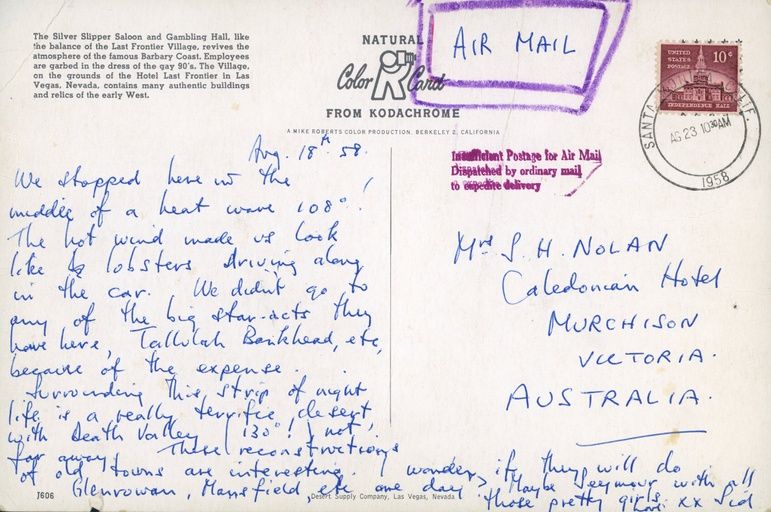 The Silver Slipper Saloon and Gambling Hall, like
the balance of the Last Frontier Village, revives the
atmosphere of the famous Barbary Coast. Employees
are garbed in the dress of the gay 90's. The Village,
on the grounds of the Hotel Last Frontier in Las
Vegas, Nevada, contains many authentic buildings
and relics of the early West.
NATURAL
Color Card
FROM KODACHROME
A MIKE ROBERTS COLOR PRODUCTION, BERKELEY 2, CALIFORNIA
AIR MAIL
UNITED STATES POSTAGE 10¢
INDEPENDENCE HALL
SANTA
AG 23 10 30 AM
1958
Insufficient Postage for Air Mail
Dispatched by ordinary mail
to expedite delivery
Aug. 18th 58.
We stopped here in the
middle of a heat wave 108°!
The hot wind made us look
like lobsters driving along
in the car. We didn't go to
any of the big star-acts they
have here, Tallulah Bankhead, etc,
because of the expense.
Surrounding this strip of night
life is a really terrific desert
with Death Valley (130°!) not
far away. These reconstructions
of old towns are interesting. I wonder if they will do
Glenrowan, Mansfield, etc one day? Maybe Seymour with all
those pretty girls. Love xx Sid
Mrs S. H. NOLAN
Caledonian Hotel
MURCHISON
VICTORIA.
AUSTRALIA.
J606
Desert Supply Company, Las Vegas, Nevada